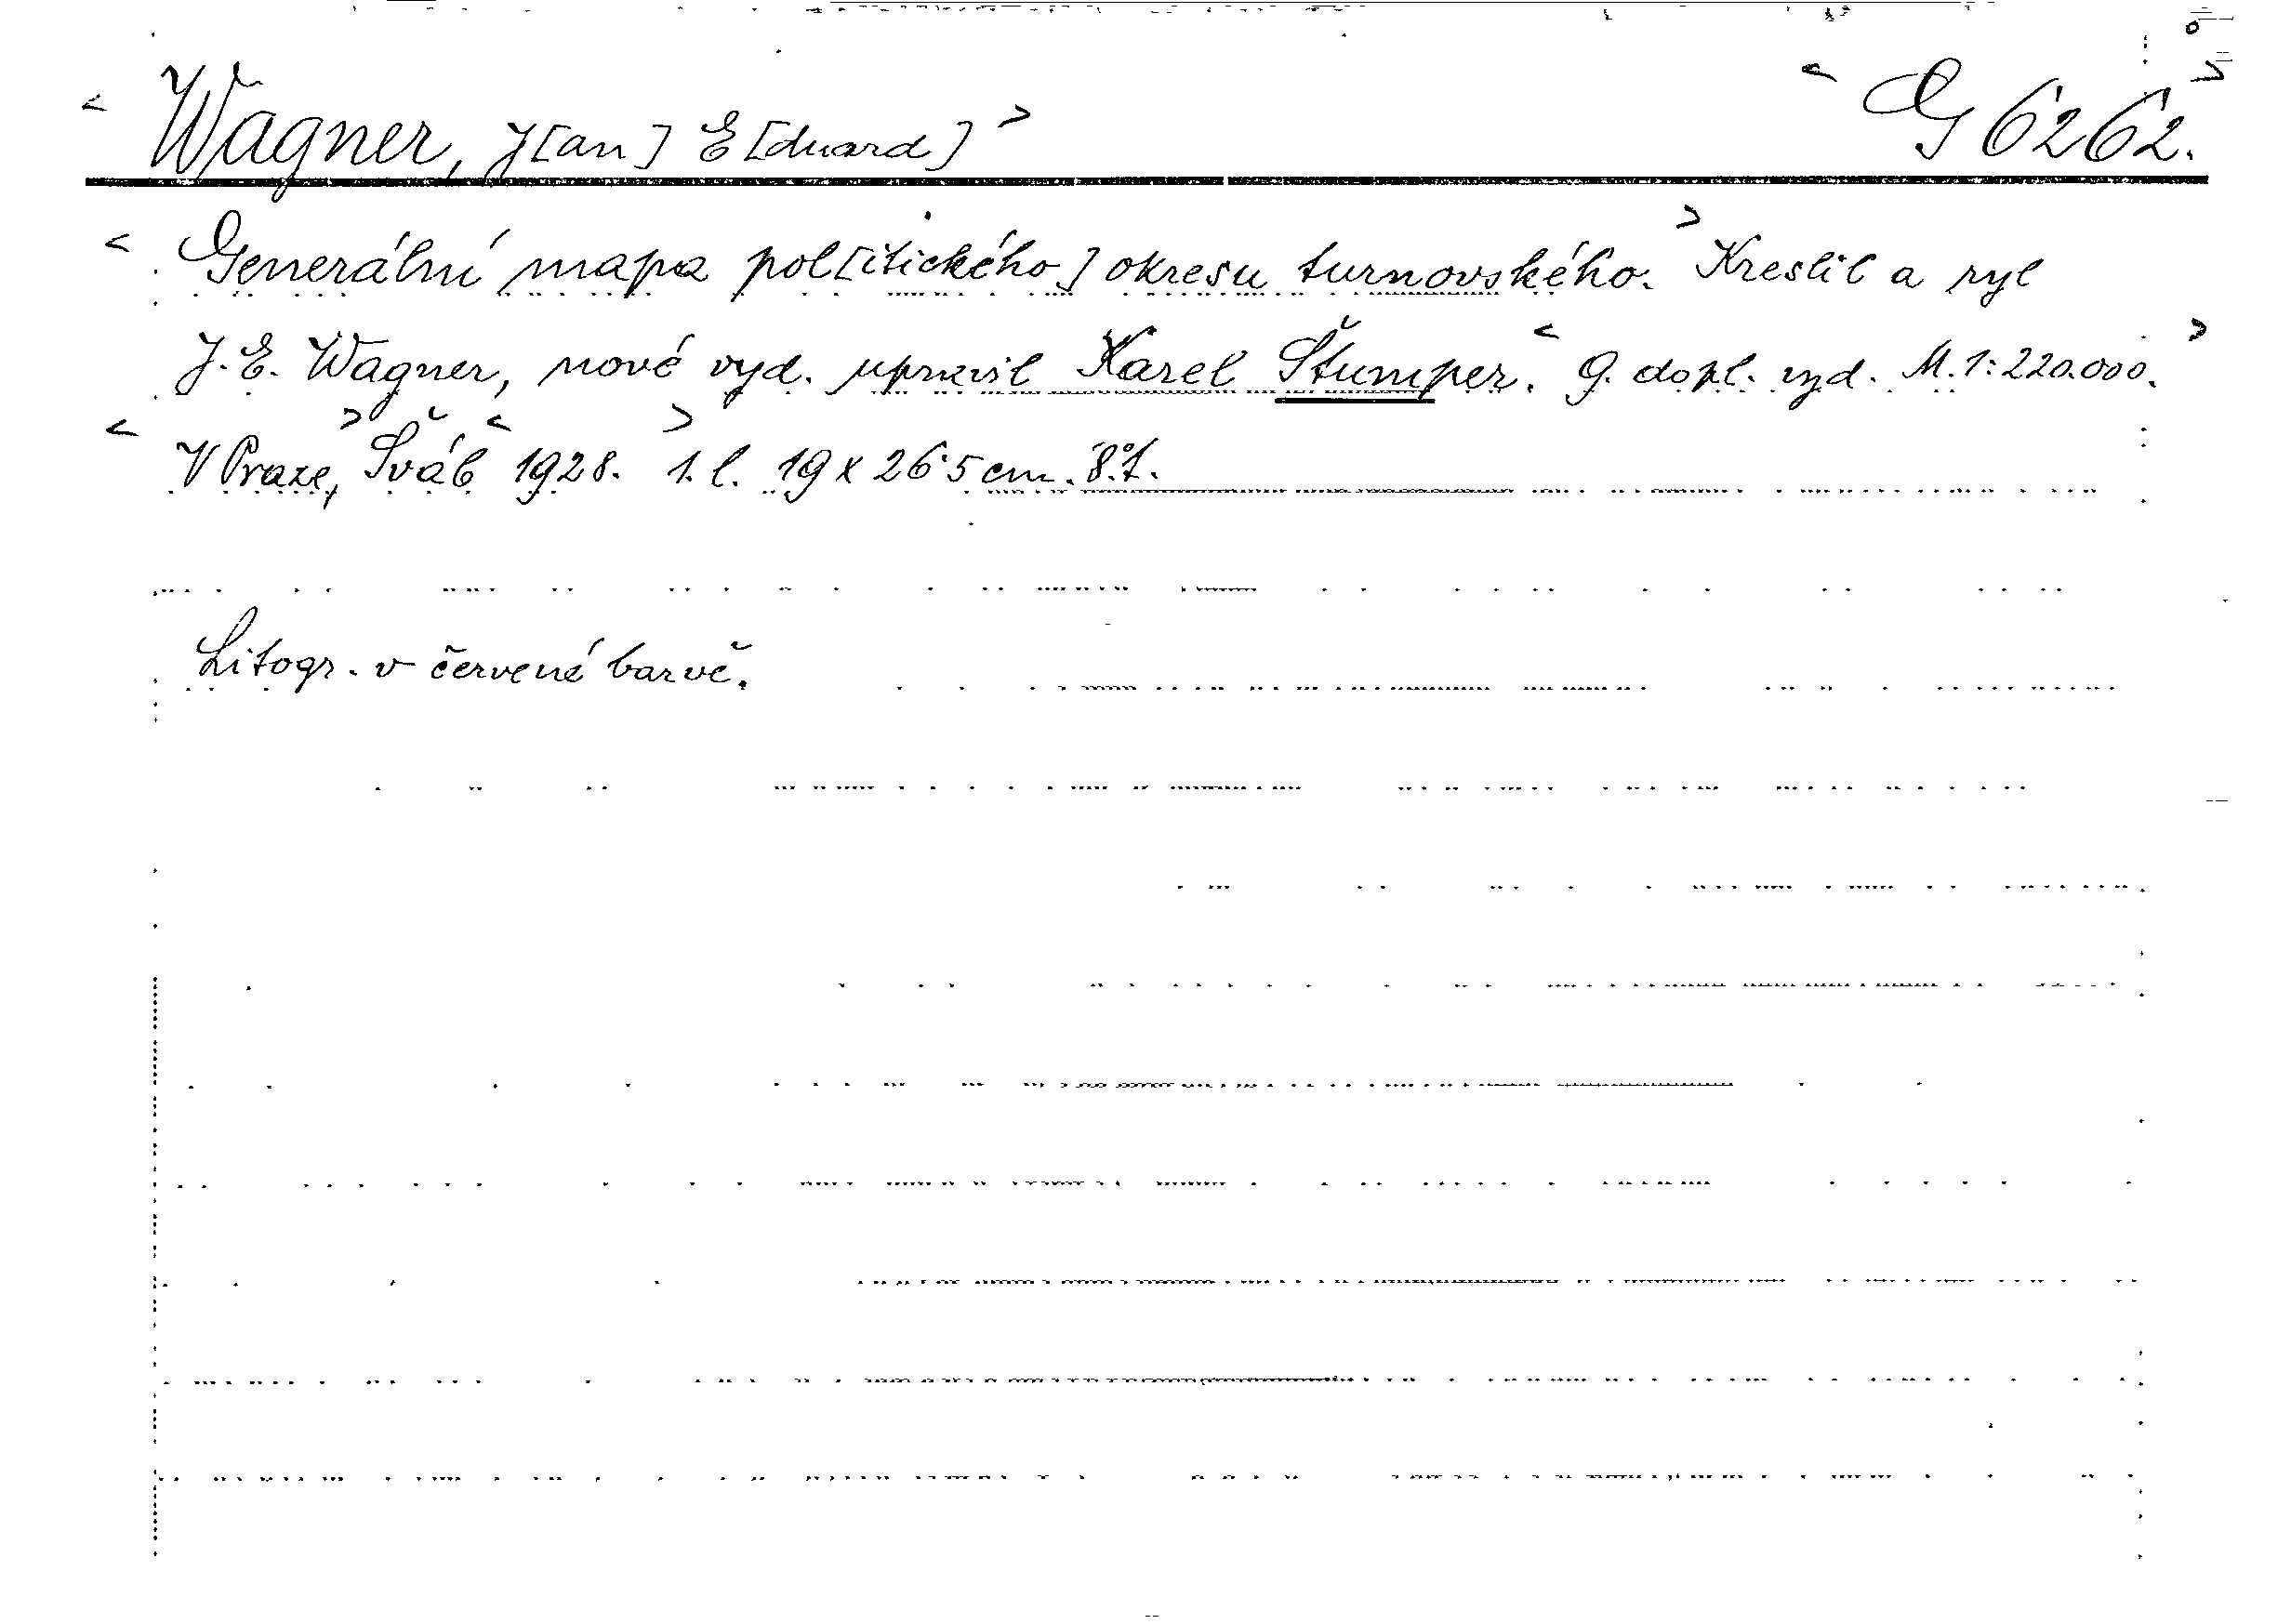 < Wagner, J[an] E[duard] > < G 6262. >
< Generální mapa pol[itického] okresu turnovského. > Kreslil a ryl
J. E. Wagner, nové vyd. upravil Karel Štumper. < 9. dopl. vyd. M. 1:220.000. >
< V Praze, > Šváb < 1928. > 1. l. 19 x 26·5 cm. 8.°
Litogr. v červené barvě.